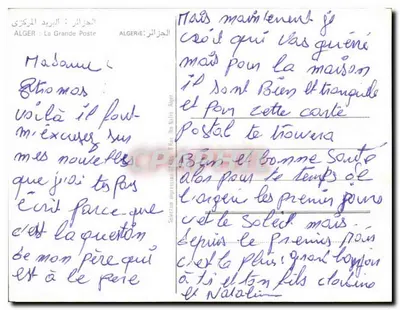 الجزائر : البريد المركزي
ALGER : La Grande Poste
ALGERIE الجزائر
Madame
Thomas :
voilà il faut
m'excuses sur
mes nouvelles
que j'ai tes pas
écrit parce que
c'est la question
de mon père qui
est à le père
Mais maintenent je
croit qui vas guérié
mais pour la maison
il sont Bien et tranquile
et pour cette carte
postal te trouvera
Bien et bonne Santé
alors pour le temps de
l'algerie les premier jours
c'est le Soleil mais
depuis le premier
c'est le pluis grand bonjour
à ti et ton fils
et Nathalie